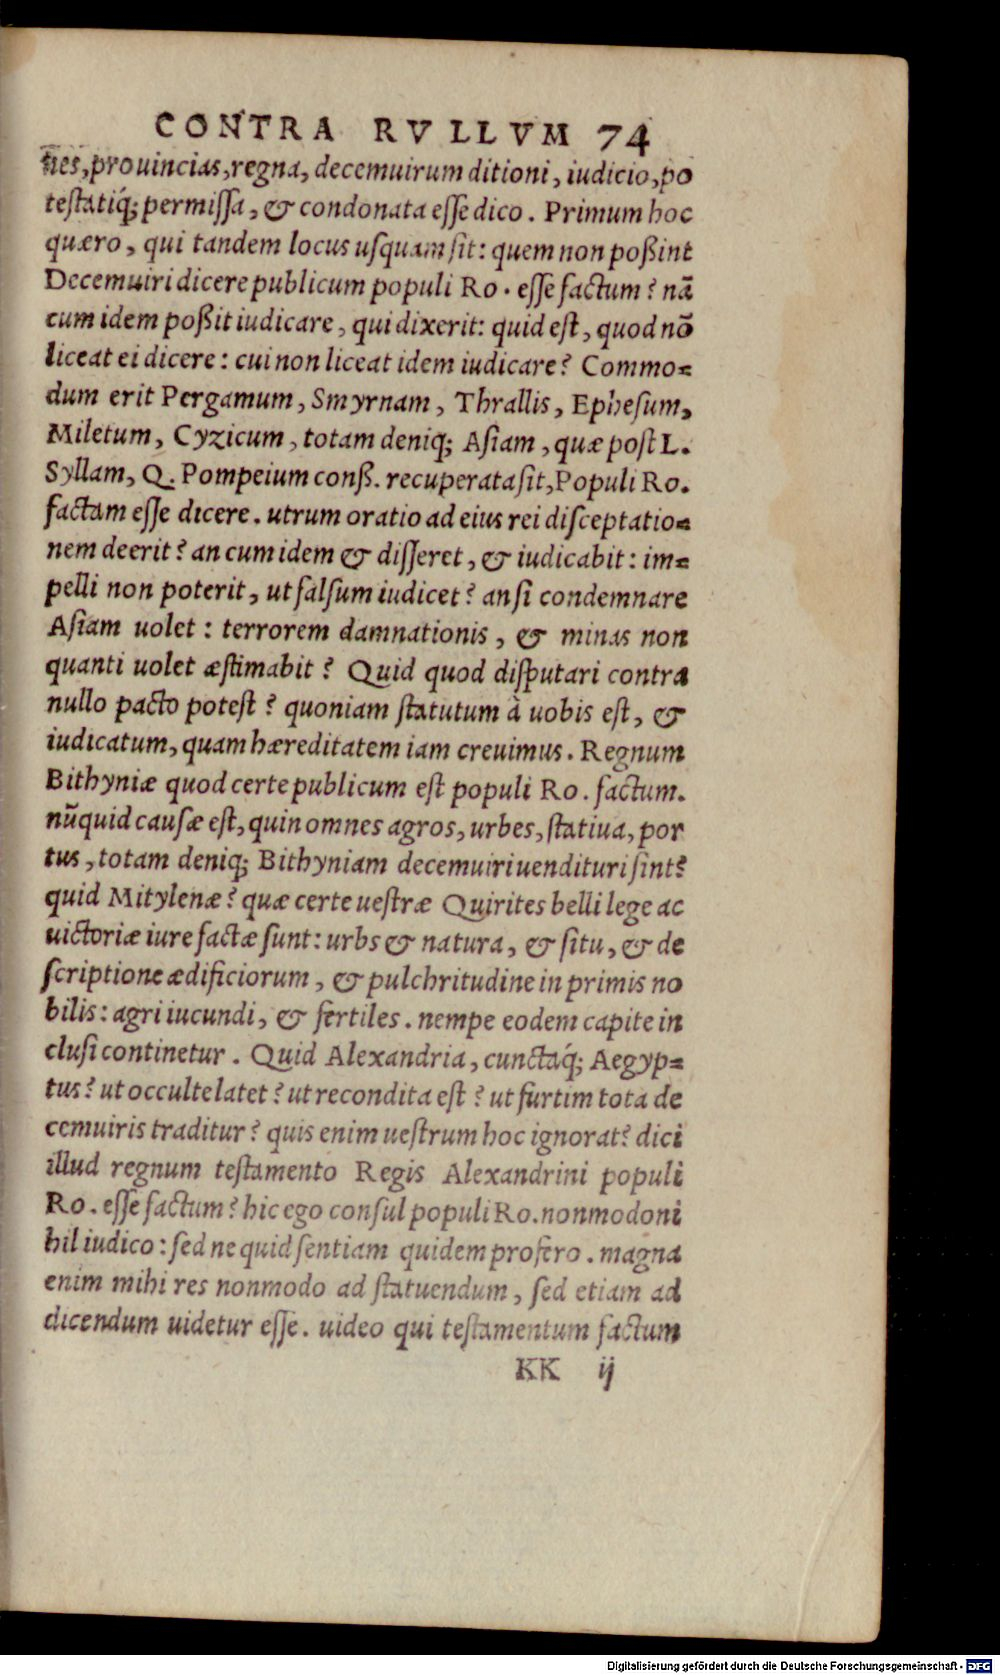 CONTRA RVLLVM 74
nes, prouincias, regna, decemuirum ditioni, iudicio, po
testatiq́; permissa, & condonata esse dico. Primum hoc
quæro, qui tandem locus usquam sit: quem non poßint
Decemuiri dicere publicum populi Ro. esse factum? nã
cum idem poßit iudicare, qui dixerit: quid est, quod nõ
liceat ei dicere: cui non liceat idem iudicare? Commo-
dum erit Pergamum, Smyrnam, Thrallis, Ephesum,
Miletum, Cyzicum, totam deniq; Asiam, quæ post L.
Syllam, Q. Pompeium conß. recuperata sit, Populi Ro.
factam esse dicere. utrum oratio ad eius rei disceptatio-
nem deerit? an cum idem & disseret, & iudicabit: im-
pelli non poterit, ut falsum iudicet? an si condemnare
Asiam uolet: terrorem damnationis, & minas non
quanti uolet æstimabit? Quid quod disputari contra
nullo pacto potest? quoniam statutum à uobis est, &
iudicatum, quam hæreditatem iam creuimus. Regnum
Bithyniæ quod certe publicum est populi Ro. factum.
nũquid causæ est, quin omnes agros, urbes, statiua, por
tus, totam deniq; Bithyniam decemuiri uendituri sint?
quid Mitylenæ? quæ certe uestræ Quirites belli lege ac
uictoriæ iure factæ sunt: urbs & natura, & situ, & de
scriptione ædificiorum, & pulchritudine in primis no
bilis: agri iucundi, & fertiles. nempe eodem capite in
clusi continetur. Quid Alexandria, cunctaq́; Aegyp-
tus? ut occulte latet? ut recondita est? ut furtim tota de
cemuiris traditur? quis enim uestrum hoc ignorat? dici
illud regnum testamento Regis Alexandrini populi
Ro. esse factum? hic ego consul populi Ro. nonmodo ni
hil iudico: sed ne quid sentiam quidem profero. magna
enim mihi res nonmodo ad statuendum, sed etiam ad
dicendum uidetur esse. uideo qui testamentum factum
KK ij
Digitalisierung gefördert durch die Deutsche Forschungsgemeinschaft - DFG